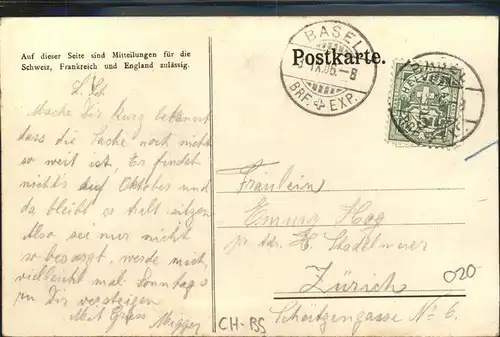 Auf dieser Seite sind Mitteilungen für die
Schweiz, Frankreich und England zulässig.
Postkarte.
BASEL
IX.06.–8
BRF. EXP.
Mache Dir kurz bekannt
dass die Sache noch nicht
so weit ist, Es findet
nichts auf Oktober und
da bleibt es halt sitzen
Also sei nur nicht
so besorgt, werde mich
vielleicht mal Sonntags
zu Dir versteigen
Mit Gruss
Fräulein
Emmy Hog
H. Stadelmeier
Zürich
Schützengasse No 6.
020
CH-BS